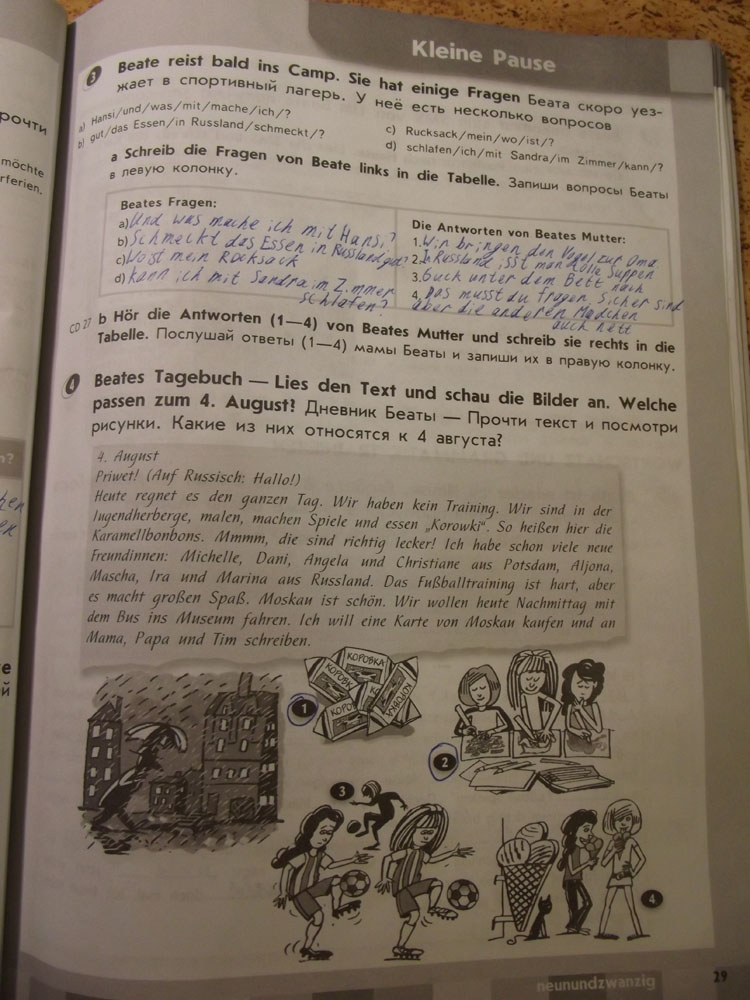 Kleine Pause
3 Beate reist bald ins Camp. Sie hat einige Fragen Беата скоро уез-
жает в спортивный лагерь. У неё есть несколько вопросов
a) Hansi/und/was/mit/mache/ich/?
b) gut/das Essen/in Russland/schmeckt/?
c) Rucksack/mein/wo/ist/?
d) schlafen/ich/mit Sandra/im Zimmer/kann/?
a Schreib die Fragen von Beate links in die Tabelle. Запиши вопросы Беаты
в левую колонку.
Beates Fragen:
a) Und was mache ich mit Hansi?
b) Schmeckt das Essen in Russland gut?
c) Wo ist mein Rocksack
d) Kann ich mit Sandra im Zimmer
schlafen?
Die Antworten von Beates Mutter:
1. Wir bringen den Vogel zur Oma
2. In Russland isst man tolle Suppen
3. Guck unter dem Bett nach
4. Das musst du fragen, sicher sind
aber die anderen Mädchen
auch nett
CD 27 b Hör die Antworten (1—4) von Beates Mutter und schreib sie rechts in die
Tabelle. Послушай ответы (1—4) мамы Беаты и запиши их в правую колонку.
4 Beates Tagebuch — Lies den Text und schau die Bilder an. Welche
passen zum 4. August? Дневник Беаты — Прочти текст и посмотри
рисунки. Какие из них относятся к 4 августа?
4. August
Priwet! (Auf Russisch: Hallo!)
Heute regnet es den ganzen Tag. Wir haben kein Training. Wir sind in der
Jugendherberge, malen, machen Spiele und essen „Korowki“. So heißen hier die
Karamellbonbons. Mmmm, die sind richtig lecker! Ich habe schon viele neue
Freundinnen: Michelle, Dani, Angela und Christiane aus Potsdam, Aljona,
Mascha, Ira und Marina aus Russland. Das Fußballtraining ist hart, aber
es macht großen Spaß. Moskau ist schön. Wir wollen heute Nachmittag mit
dem Bus ins Museum fahren. Ich will eine Karte von Moskau kaufen und an
Mama, Papa und Tim schreiben.
КОРОВКА
КОРОВК
КОРОВ
КОРОВКА
1
2
3
4
neunundzwanzig
29
möchte
erferien.